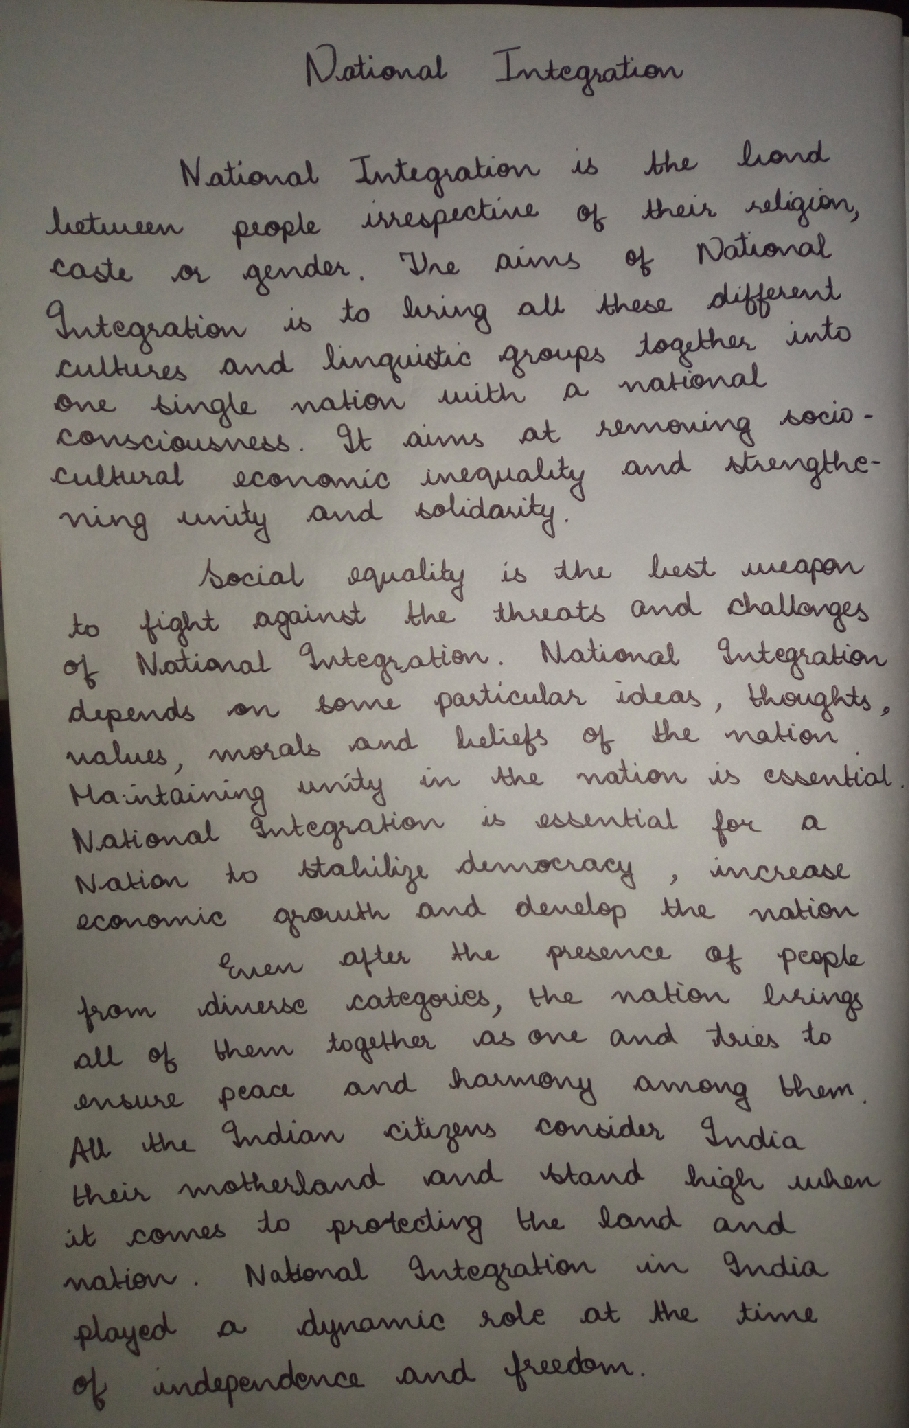 National Integration
National Integration is the bond
between people irrespective of their religion,
caste or gender. The aims of National
Integration is to bring all these different
cultures and linguistic groups together into
one single nation with a national
consciousness. It aims at removing socio-
cultural economic inequality and strengthe-
ning unity and solidarity.
Social equality is the best weapon
to fight against the threats and challanges
of National Integration. National Integration
depends on some particular ideas, thoughts,
values, morals and beliefs of the nation.
Maintaining unity in the nation is essential.
National Integration is essential for a
Nation to stabilize democracy, increase
economic growth and develop the nation
Even after the presence of people
from diverse categories, the nation brings
all of them together as one and tries to
ensure peace and harmony among them.
All the Indian citizens consider India
their motherland and stand high when
it comes to protecting the land and
nation. National Integration in India
played a dynamic role at the time
of independence and freedom.